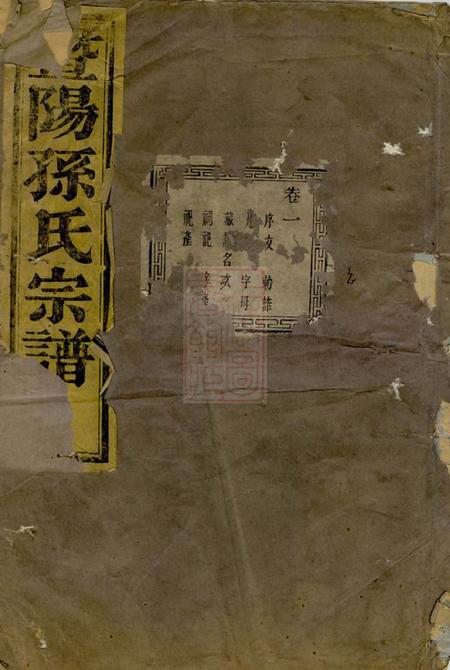 暨陽孫氏宗譜
卷一
序文 勅誥
字母
名次
祠記
祀產